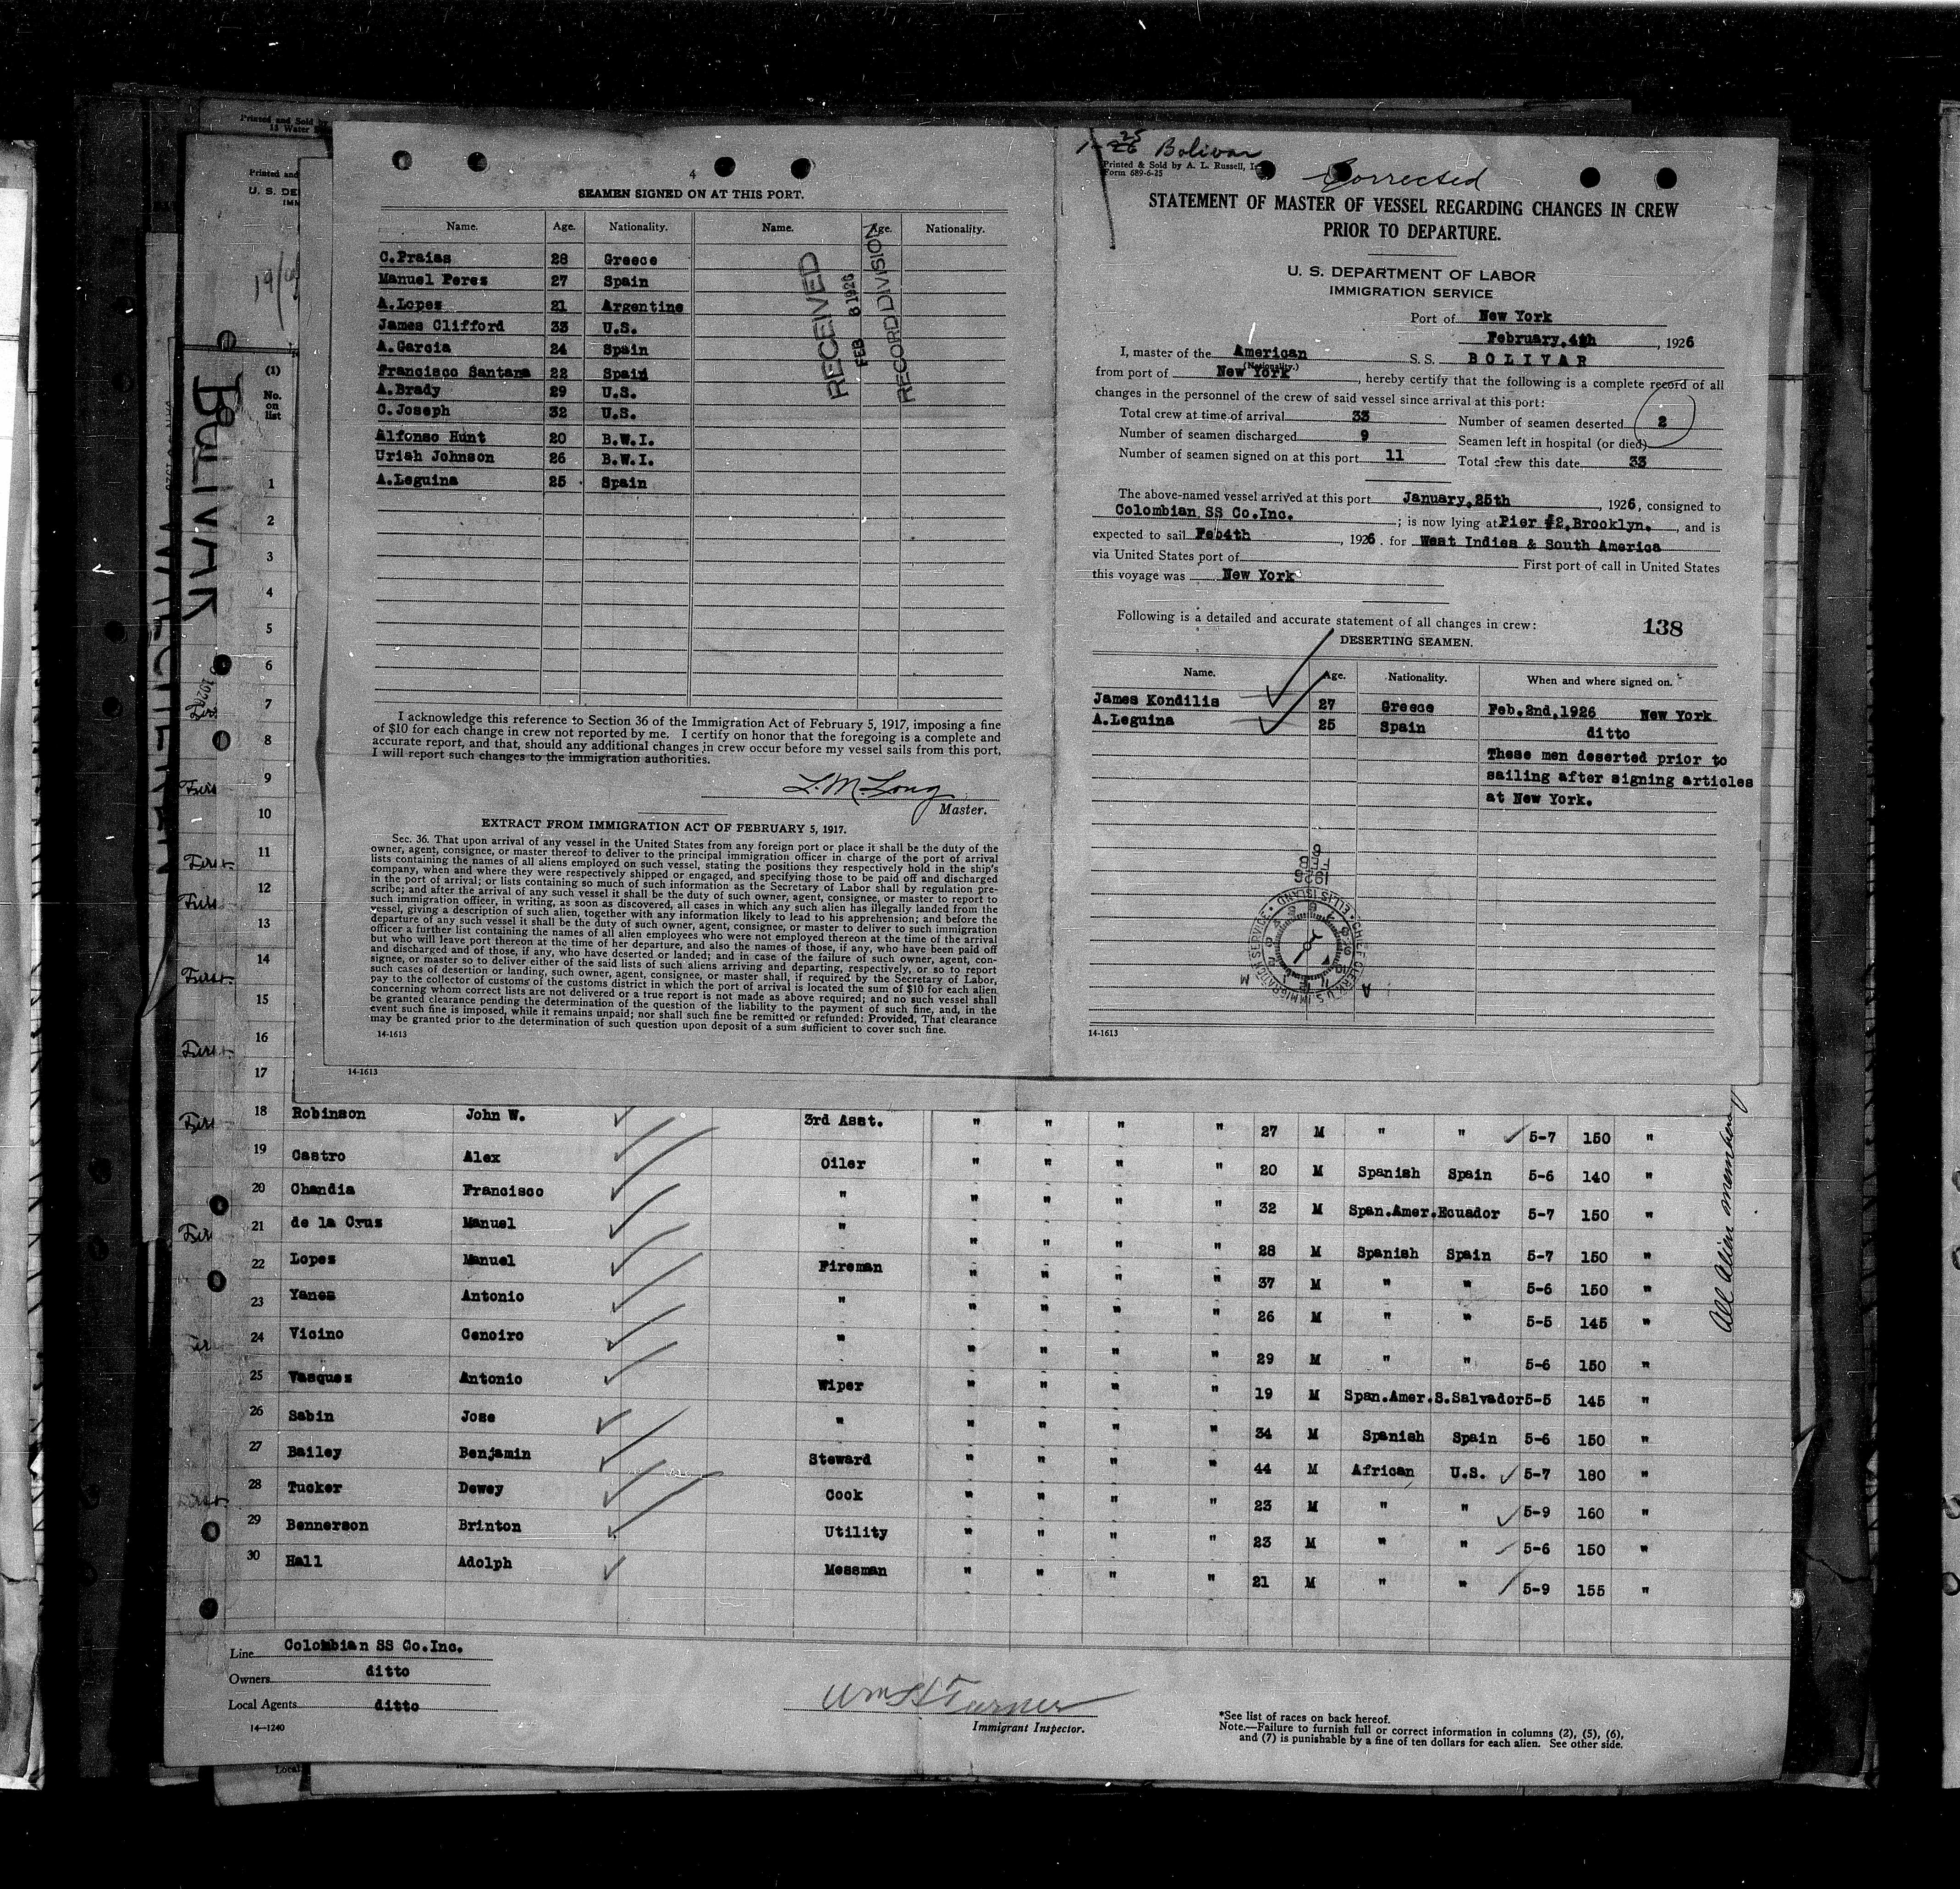 4
SEAMEN SIGNED ON AT THIS PORT.
Name. Age. Nationality. Name. Age. Nationality.
C.Praias 28 Greece
Manuel Peres 27 Spain
A.Lopez 21 Argentine
James Clifford 33 U.S.
A.Garcia 24 Spain
Francisco Santana 22 Spain
A.Brady 29 U.S.
C.Joseph 32 U.S.
Alfonso Hunt 20 B.W.I.
Uriah Johnson 26 B.W.I.
A.Leguina 25 Spain
RECEIVED
FEB 8 1926
RECORD DIVISION
I acknowledge this reference to Section 36 of the Immigration Act of February 5, 1917, imposing a fine
of $10 for each change in crew not reported by me. I certify on honor that the foregoing is a complete and
accurate report, and that, should any additional changes in crew occur before my vessel sails from this port,
I will report such changes to the immigration authorities.
L.M. Long
Master.
EXTRACT FROM IMMIGRATION ACT OF FEBRUARY 5, 1917.
Sec. 36. That upon arrival of any vessel in the United States from any foreign port or place it shall be the duty of the
owner, agent, consignee, or master thereof to deliver to the principal immigration officer in charge of the port of arrival
lists containing the names of all aliens employed on such vessel, stating the positions they respectively hold in the ship's
company, when and where they were respectively shipped or engaged, and specifying those to be paid off and discharged
in the port of arrival; or lists containing so much of such information as the Secretary of Labor shall by regulation pre-
scribe; and after the arrival of any such vessel it shall be the duty of such owner, agent, consignee, or master to report to
such immigration officer, in writing, as soon as discovered, all cases in which any such alien has illegally landed from the
vessel, giving a description of such alien, together with any information likely to lead to his apprehension; and before the
departure of any such vessel it shall be the duty of such owner, agent, consignee, or master to deliver to such immigration
officer a further list containing the names of all alien employees who were not employed thereon at the time of the arrival
but who will leave port thereon at the time of her departure, and also the names of those, if any, who have been paid off
and discharged and of those, if any, who have deserted or landed; and in case of the failure of such owner, agent, con-
signee, or master so to deliver either of the said lists of such aliens arriving and departing, respectively, or so to report
such cases of desertion or landing, such owner, agent, consignee, or master shall, if required by the Secretary of Labor,
pay to the collector of customs of the customs district in which the port of arrival is located the sum of $10 for each alien
concerning whom correct lists are not delivered or a true report is not made as above required; and no such vessel shall
be granted clearance pending the determination of the question of the liability to the payment of such fine, and, in the
event such fine is imposed, while it remains unpaid; nor shall such fine be remitted or refunded: Provided, That clearance
may be granted prior to the determination of such question upon deposit of a sum sufficient to cover such fine.
14-1613
14-1613
Bolivar
Printed & Sold by A. L. Russell,
Form 689-6-25
Corrected
STATEMENT OF MASTER OF VESSEL REGARDING CHANGES IN CREW
PRIOR TO DEPARTURE.
U. S. DEPARTMENT OF LABOR
IMMIGRATION SERVICE
Port of New York
February,4th, 1926
I, master of the American S. S. BOLIVAR
(Nationality.)
from port of New York, hereby certify that the following is a complete record of all
changes in the personnel of the crew of said vessel since arrival at this port:
Total crew at time of arrival 33 Number of seamen deserted 2
Number of seamen discharged 9 Seamen left in hospital (or died)
Number of seamen signed on at this port 11 Total crew this date 33
The above-named vessel arrived at this port January,25th, 1926, consigned to
Colombian SS Co.Inc.; is now lying at Pier #2,Brooklyn., and is
expected to sail Feb4th, 1926. for West Indies & South America
via United States port of First port of call in United States
this voyage was New York
Following is a detailed and accurate statement of all changes in crew:
138
DESERTING SEAMEN.
Name. Age. Nationality. When and where signed on.
James Kondilis 27 Greece Feb.2nd,1926 New York
A.Leguina 25 Spain ditto
These men deserted prior to
sailing after signing articles
at New York.
1926
FEB
6
CHIEF CLERK U.S. IMMIGRATION SERVICE ELLIS ISLAND
14-1613
Printed and Sold by
Printed and
U. S. DE
IMM
BOLIVAR
(1)
No.
on
list
1
2
3
4
5
6
7
8
9
10
11
12
13
14
15
16
17
First
First
First
First
18 Robinson John W. 3rd Asst. " " " " 27 M " " 5-7 150 "
19 Castro Alex Oiler " " " " 20 M Spanish Spain 5-6 140 "
20 Chandia Francisco " " " " " 32 M Span.Amer.Ecuador 5-7 150 "
21 de la Cruz Manuel " " " " " 28 M Spanish Spain 5-7 150 "
22 Lopez Manuel Fireman " " " " 37 M " " 5-6 150 "
23 Yanes Antonio " " " " " 26 M " " 5-5 145 "
24 Vicino Cenoiro " " " " " 29 M " " 5-6 150 "
25 Vasquez Antonio Wiper " " " " 19 M Span.Amer.S.Salvador 5-5 145 "
26 Sabin Jose " " " " " 34 M Spanish Spain 5-6 150 "
27 Bailey Benjamin Steward " " " " 44 M African U.S. 5-7 180 "
28 Tucker Dewey Cook " " " " 23 M " " 5-9 160 "
29 Bennerson Brinton Utility " " " " 23 M " " 5-6 150 "
30 Hall Adolph Messman " " " " 21 M " " 5-9 155 "
All alien members
Line Colombian SS Co.Inc.
Owners ditto
Local Agents ditto
14-1240
Wm H Turner
Immigrant Inspector.
*See list of races on back hereof.
Note.—Failure to furnish full or correct information in columns (2), (5), (6),
and (7) is punishable by a fine of ten dollars for each alien. See other side.
Local